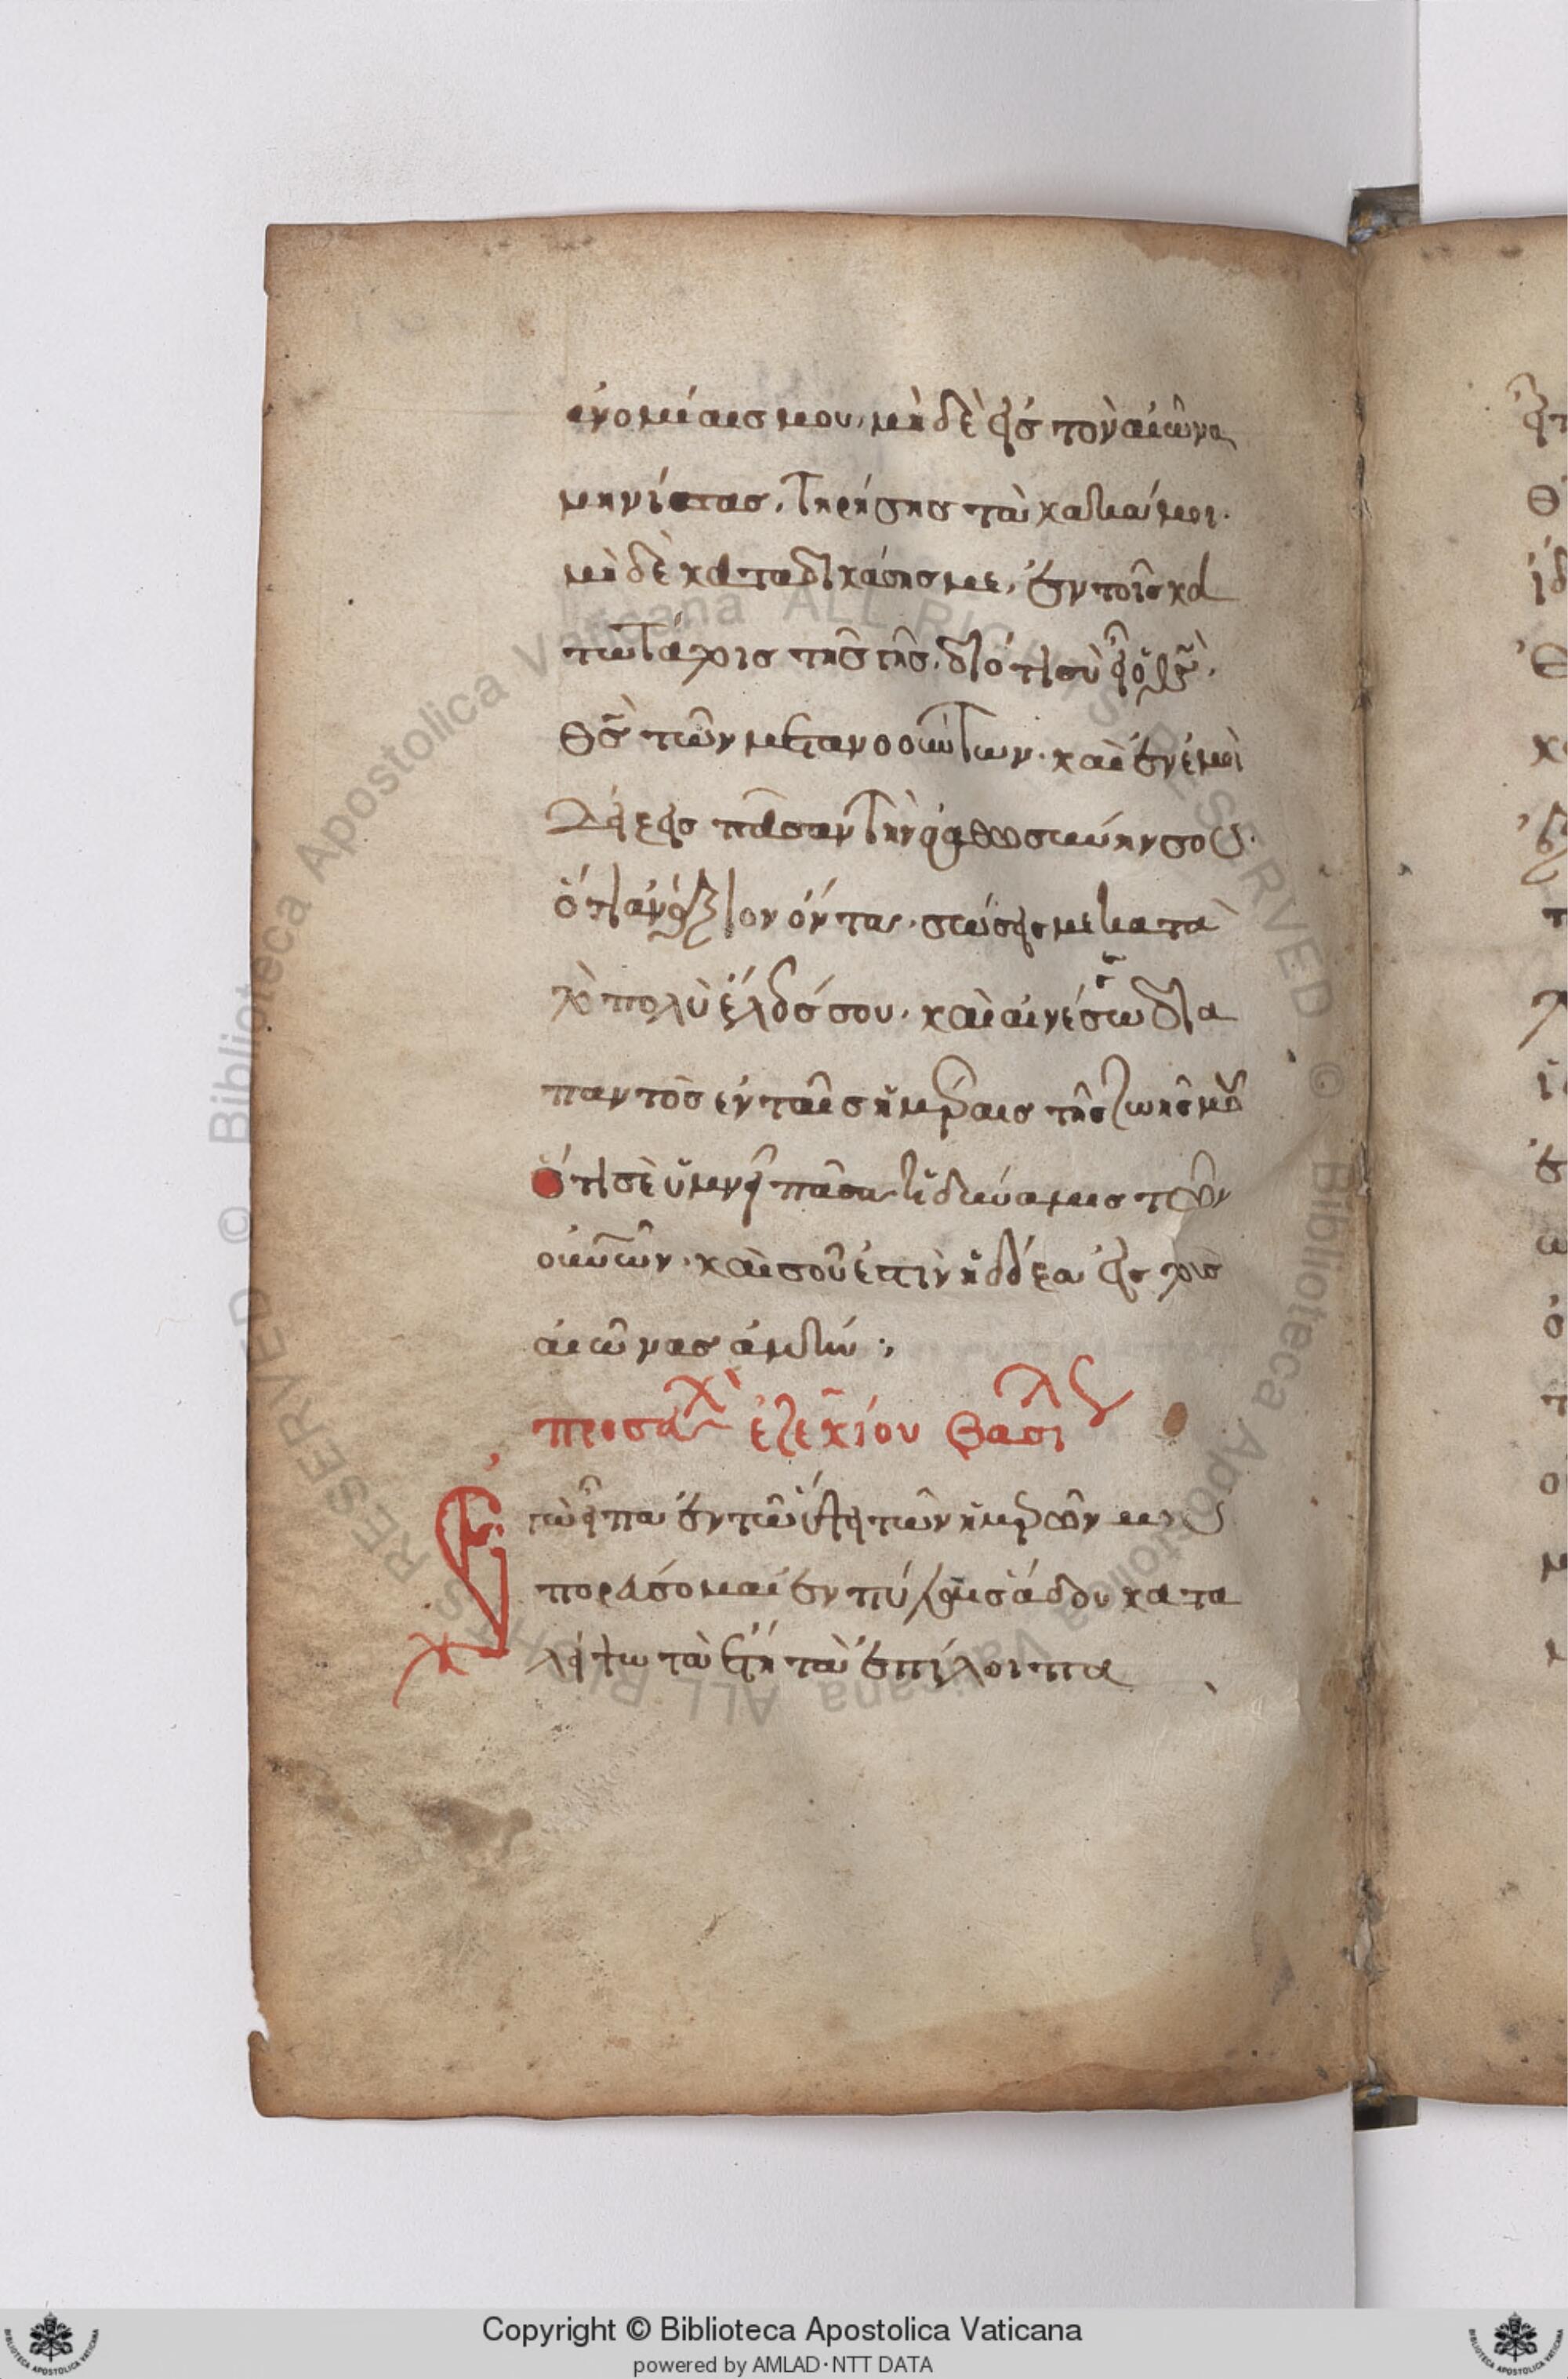 ἀνομίαις μου, μὴ δὲ εἰς τὸν αἰῶνα
μηνίσας, τηρήσης τὰ κακά μοι·
μὴ δὲ καταδικάσης με, ἐν τοῖς κα
τωτάτοις τῆς γῆς. διότι σὺ εἶ ὁ θς̄.
θς̄ τῶν μετανοούντων. καὶ ἐν ἐμοὶ
δείξεις πᾶσαν τὴν ἀγαθωσύνην σου.
ὅτι ἀνάξιον ὄντα, σώσεις με κατὰ
τὸ πολὺ ἔλεός σου, καὶ αἰνέσω σε δια
παντὸς ἐν ταῖς ἡμέραις τῆς ζωῆς μου
ὅτι σὲ ὑμνεῖ πᾶσα ἡ δύναμις τῶν
οὐνῶν. καὶ σοῦ ἐστὶν ἡ δόξα εἰς τοὺς
αἰῶνας ἀμήν:
προσευχὴ ἐζεκίου βασιλέως
Ἐγὼ εἶπα ἐν τῶ ὕψει τῶν ἡμερῶν μου
πορεύσομαι ἐν πύλαις ἅδου κατα
λείψω τὰ ἔτη τὰ ἐπίλοιπα
Copyright © Biblioteca Apostolica Vaticana
powered by AMLAD·NTT DATA